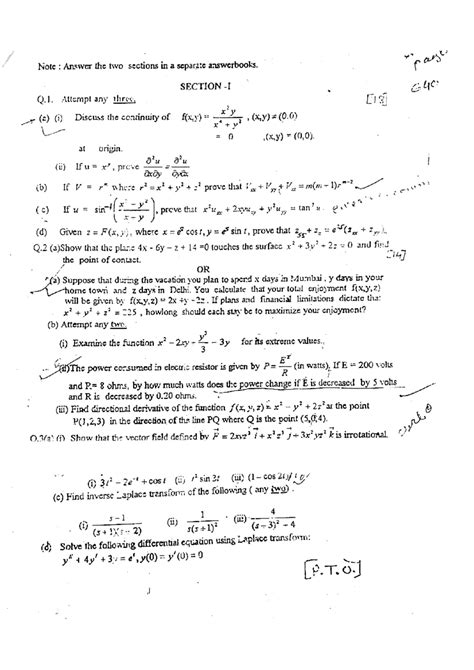 Note : Answer the two sections in a separate answerbooks.
page
G40
SECTION -I
Q.1. Attempt any three.
[18]
(a) (i) Discuss the continuity of f(x,y) = x²y / (x⁴ + y²) , (x,y) ≠ (0,0)
= 0 ,(x,y) = (0,0).
at origin.
(ii) If u = xʸ, prove ∂²u/∂x∂y = ∂²u/∂y∂x
(b) If V = rᵐ where r² = x² + y² + z² prove that Vₓₓ + Vyy + Vzz = m(m+1)rᵐ⁻²
(c) If u = sin⁻¹((x² - y²)/(x - y)), prove that x²uₓₓ + 2xyuₓy + y²uyy = tan³u
(d) Given z = F(x,y), where x = eᵘ cos t, y = eᵘ sin t, prove that
Q.2 (a)Show that the plane 4x - 6y - z + 14 =0 touches the surface x² + 3y² + 2z = 0 and find
[14]
the point of contact.
OR
(a) Suppose that during the vacation you plan to spend x days in Mumbai, y days in your
home town and z days in Delhi. You calculate that your total enjoyment f(x,y,z)
will be given by f(x,y,z) = 2x +y +2z. If plans and financial limitations dictate that
x² + y² + z² = 225 , howlong should each stay be to maximize your enjoyment?
(b) Attempt any two.
(i) Examine the function x² - 2xy + y³/3 - 3y for its extreme values.
(ii)The power consumed in electric resistor is given by P = E²/R (in watts). If E = 200 volts
and R = 8 ohms, by how much watts does the power change if E is decreased by 5 volts
and R is decreased by 0.20 ohms.
(iii) Find directional derivative of the function f(x,y,z) = x² - y² + 2z² at the point
P(1,2,3) in the direction of the line PQ where Q is the point (5,0,4).
Q.3(a) (i) Show that the vector field defined by F = 2xyz³ i + x²z³ j + 3x²yz² k is irrotational.
(i) 3t² - 2e⁻ᵗ + cos t (ii) t² sin 3t (iii) (1 - cos 2t)/t
(c) Find inverse Laplace transform of the following ( any two) .
(i) (s-1)/((s+1)(s-2)) (ii) 1/(s(s+1)²) (iii) 4/((s-3)² - 4)
(d) Solve the following differential equation using Laplace transform:
y″ + 4y′ + 3y = eᵗ, y(0) = y′(0) = 0
[P.T.O.]